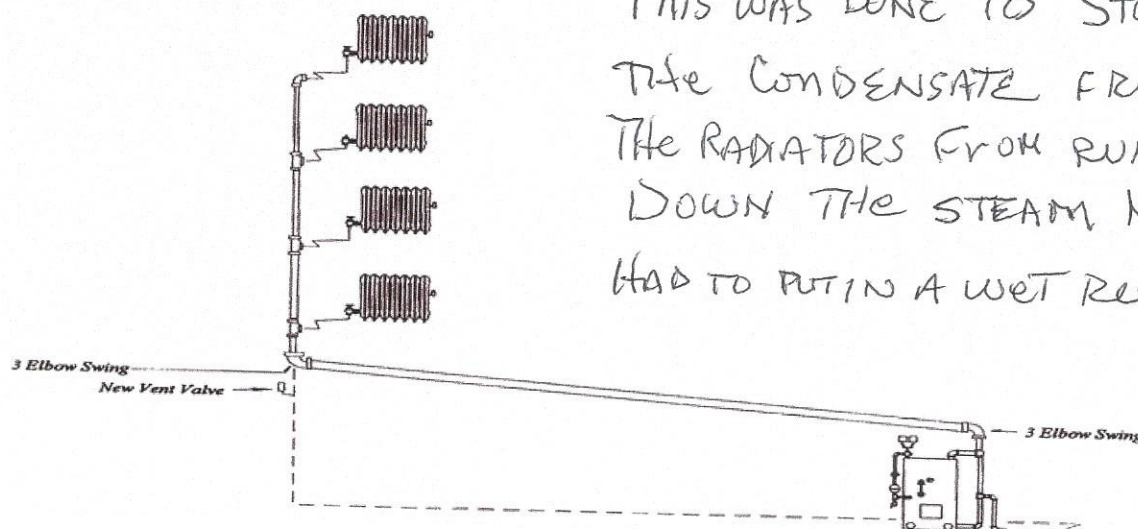 THIS WAS DONE TO
THe CONDENSATE FR
THe RADIATORS FrOM RUN
DOWN THe STEAM
HAD TO PUT IN A WeT Re
3 Elbow Swing
New Vent Valve
3 Elbow Swing